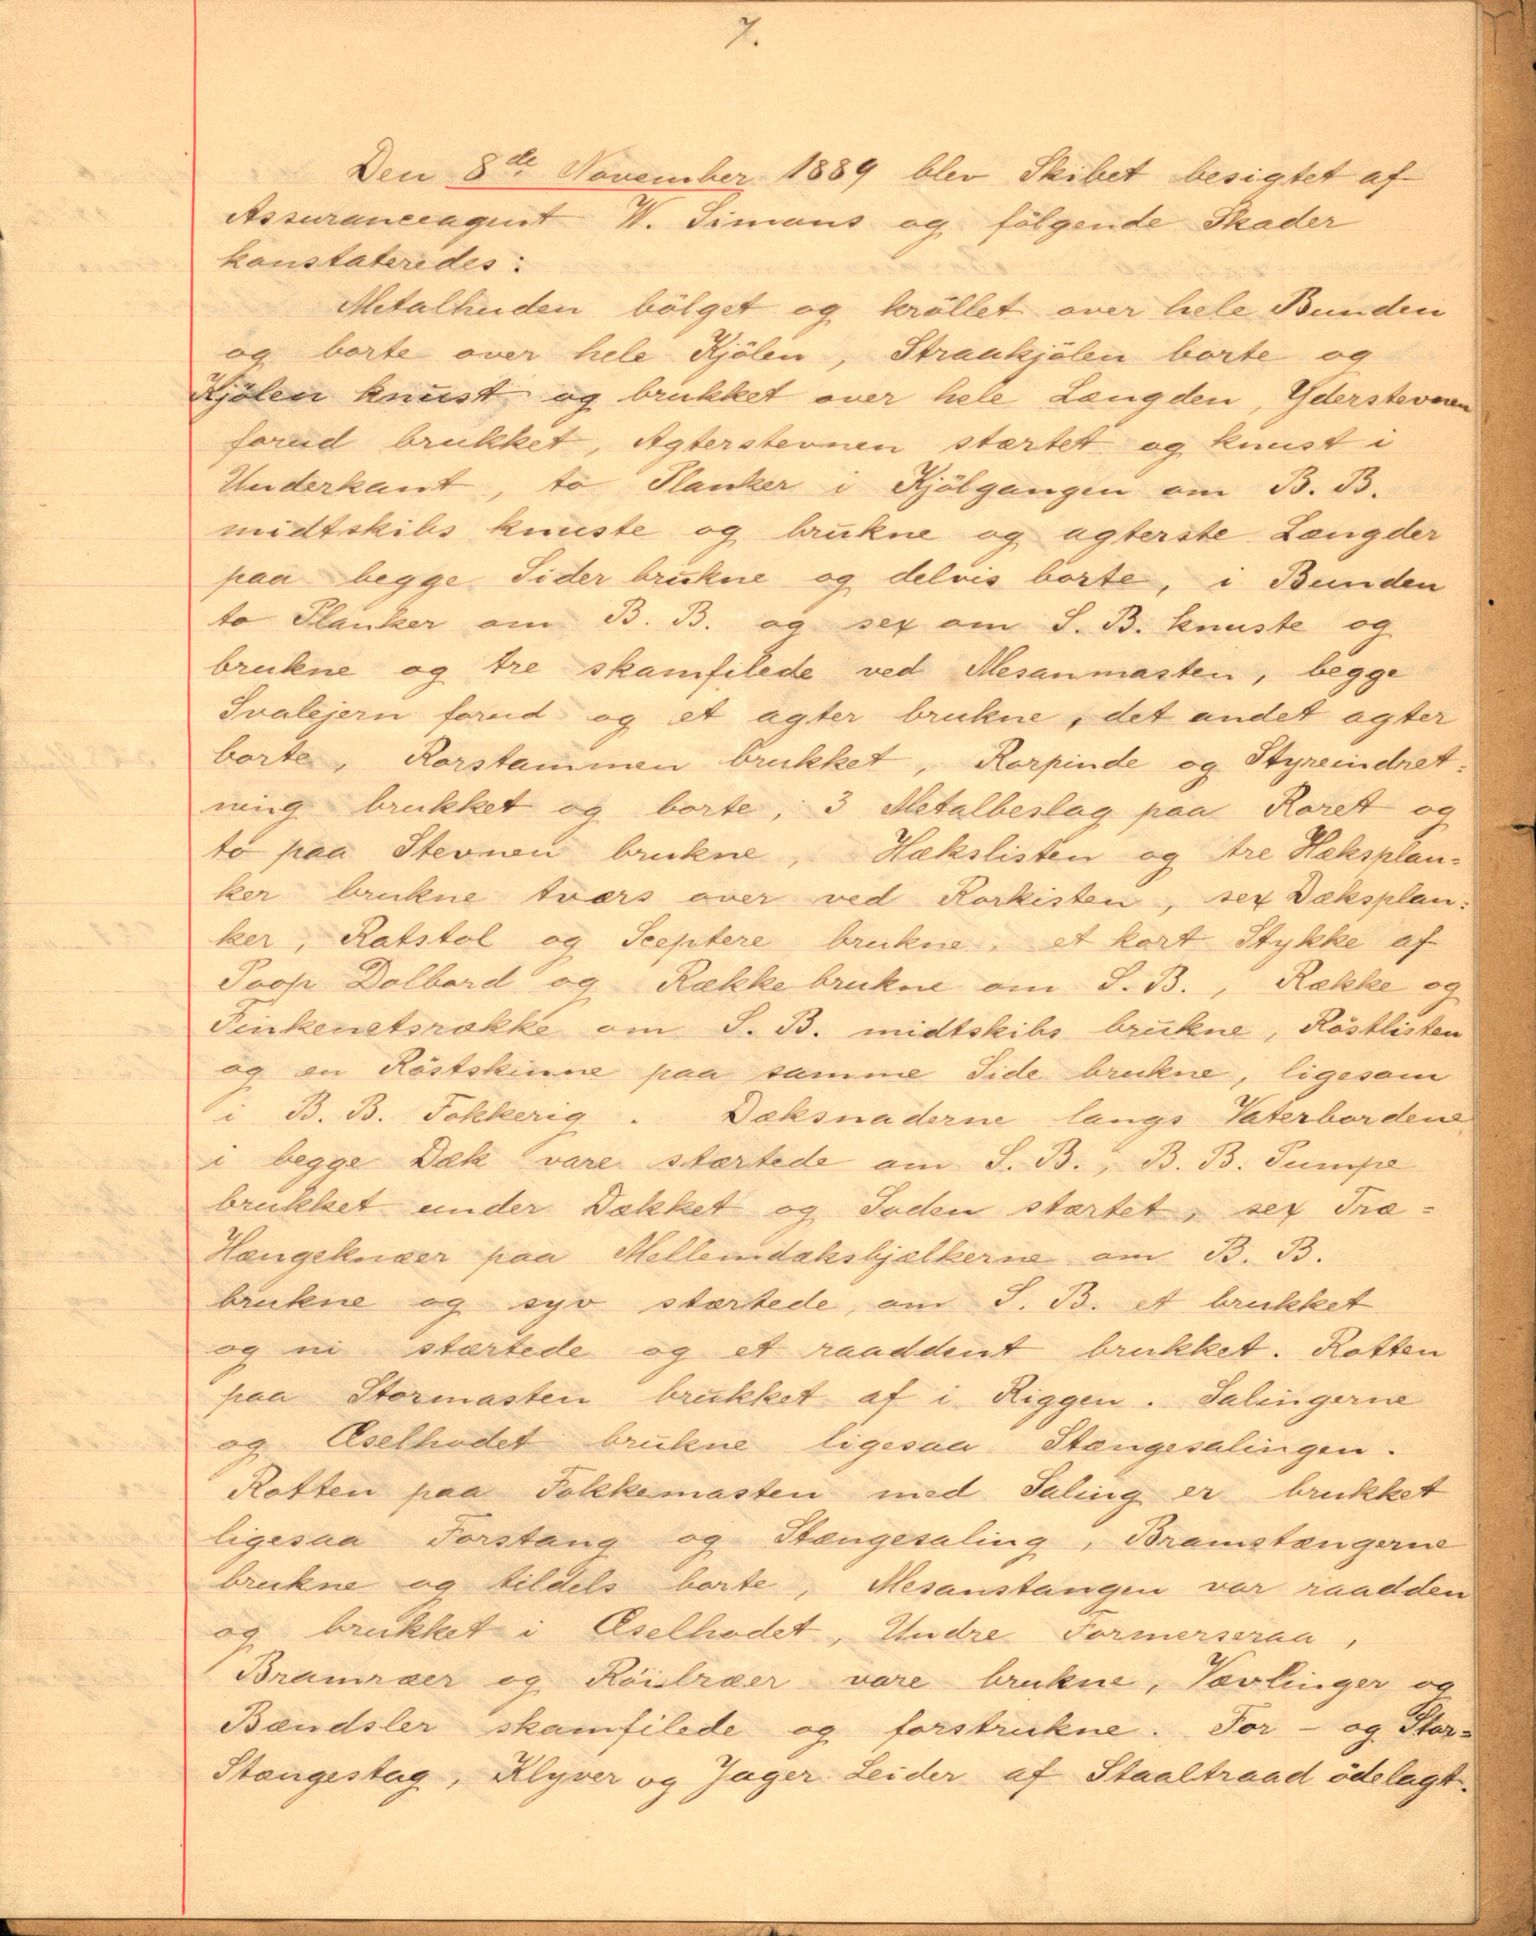 7.
Den 8de November 1889 blev Skibet besigtet af
Assuranceagent W. Simons og fölgende Skader
konstateredes:
Metalhuden bölget og kröllet over hele Bunden
og borte over hele Kjölen, Straakjölen borte og
Kjölen knust og brukket over hele Længden, Yderstevnen
forud brukket, Agterstevnen stærtet og knust i
Underkant, to Planker i Kjölgangen om B. B.
midtskibs knuste og brukne og agterste Længder
paa begge Sider brukne og delvis borte, i Bunden
to Planker om B. B. og sex om S. B. knuste og
brukne og tre skamfilede ved Mesanmasten, begge
Svalejern forud og et agter brukne, det andet agter
borte, Rorstammen brukket, Rorpinde og Styreindret=
ning brukket og borte, 3 Metalbeslag paa Roret og
to paa Stevnen brukne, Hækslisten og tre Hæksplan=
ker brukne tværs over ved Rorkisten, sex Dæksplan=
ker, Ratstol og Sceptere brukne, et kort Stykke af
Poop Dolbord og Række brukne om S. B., Række og
Finkenetsrække om S. B. midtskibs brukne, Röstlisten
og en Röstskinne paa samme Side brukne, ligesom
i B. B. Fokkerig. Dæksnaderne langs Vaterbordene
i begge Dæk vare stærtede om S. B., B. B. Pumpe
brukket under Dækket og Soden stærtet, sex Træ=
Hængeknæer paa Mellemdæksbjælkerne om B. B.
brukne og syv stærtede, om S. B. et brukket
og ni stærtede og et raaddent brukket. Rotten
paa Stormasten brukket af i Riggen. Salingerne
og Æselhodet brukne ligesaa Stængesalingen.
Rotten paa Fokkemasten med Saling er brukket
ligesaa Forstang og Stængesaling, Bramstængerne
brukne og tildels borte, Mesanstangen var raadden
og brukket i Æselhodet, Undre Formerseraa,
Bramræer og Röilræer vare brukne, Vævlinger og
Bændsler skamfilede og forstrukne. For - og Stor=
Stængestag, Klyver og Jager Leider af Staaltraad ödelagt.